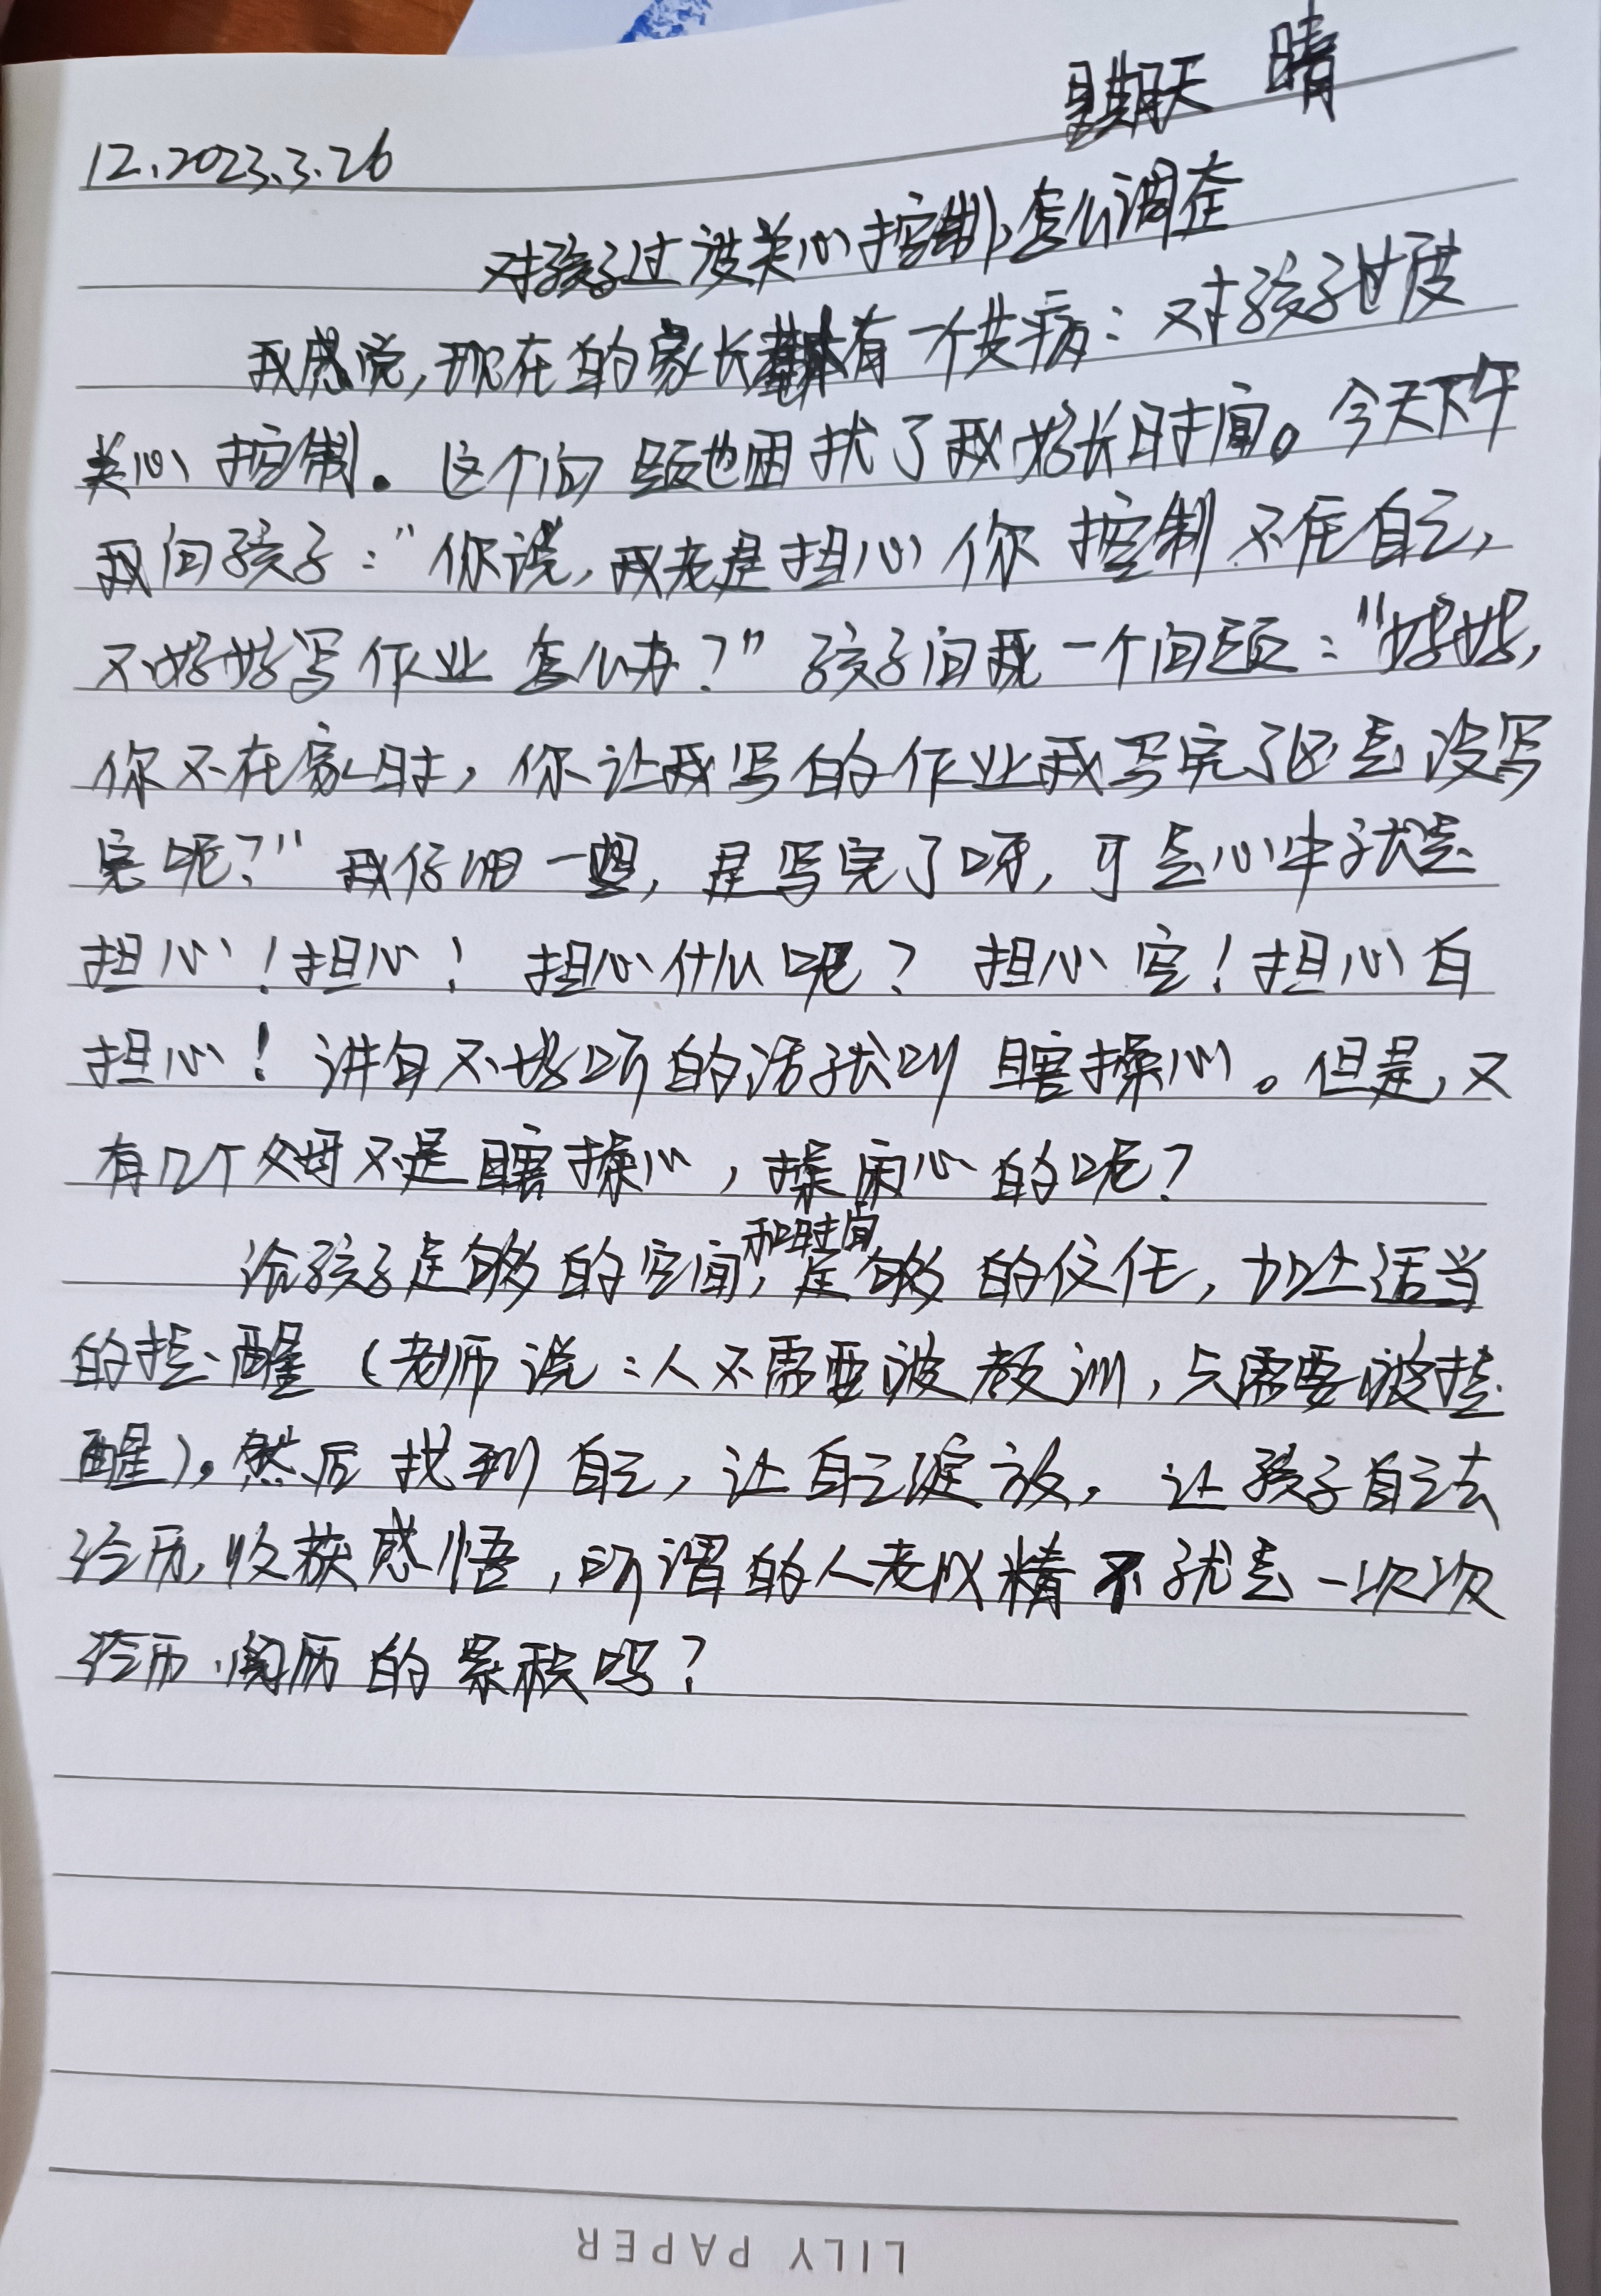 星期天 晴
12.2023.3.26
对孩子过度关心控制,怎么调查
我感觉,现在的家长都有一个共病:对孩子过度
关心控制。这个问题也困扰了我好长时间。今天下午
我问孩子:"你说,我老是担心你控制不住自己,
不好好写作业怎么办?"孩子问我一个问题:"妈妈,
你不在家时,你让我写的作业我写完了还是没写
完呢?"我仔细一想,是写完了呀,可是心中就是
担心!担心!担心什么呢?担心空!担心白
担心!讲句不好听的话就叫瞎操心。但是,又
有几个父母不是瞎操心,操闲心的呢?
给孩子足够的空间和时间,足够的信任,加上适当
的提醒(老师说:人不需要被教训,只需要被提
醒)。然后找到自己,让自己绽放。让孩子自己去
经历,收获感悟,所谓的人老以精不就是一次次
经历、阅历的累积吗?
LILY PAPER